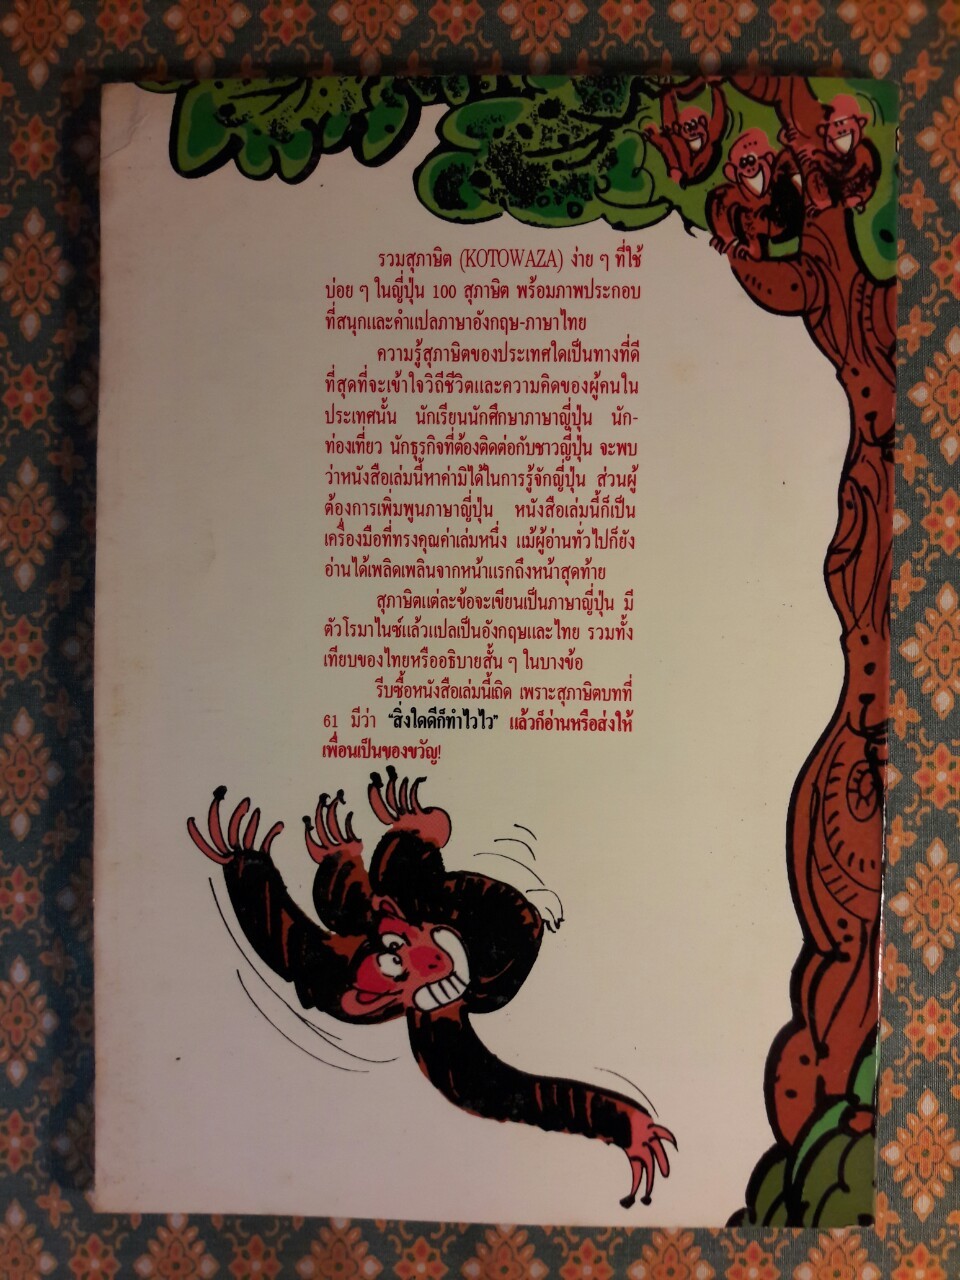 รวมสุภาษิต (KOTOWAZA) ง่าย ๆ ที่ใช้
บ่อย ๆ ในญี่ปุ่น 100 สุภาษิต พร้อมภาพประกอบ
ที่สนุกและคำแปลภาษาอังกฤษ-ภาษาไทย
ความรู้สุภาษิตของประเทศใดเป็นทางที่ดี
ที่สุดที่จะเข้าใจวิถีชีวิตและความคิดของผู้คนใน
ประเทศนั้น นักเรียนนักศึกษาภาษาญี่ปุ่น นัก-
ท่องเที่ยว นักธุรกิจที่ต้องติดต่อกับชาวญี่ปุ่น จะพบ
ว่าหนังสือเล่มนี้หาค่ามิได้ในการรู้จักญี่ปุ่น ส่วนผู้
ต้องการเพิ่มพูนภาษาญี่ปุ่น หนังสือเล่มนี้ก็เป็น
เครื่องมือที่ทรงคุณค่าเล่มหนึ่ง แม้ผู้อ่านทั่วไปก็ยัง
อ่านได้เพลิดเพลินจากหน้าแรกถึงหน้าสุดท้าย
สุภาษิตแต่ละข้อจะเขียนเป็นภาษาญี่ปุ่น มี
ตัวโรมาไนซ์แล้วแปลเป็นอังกฤษและไทย รวมทั้ง
เทียบของไทยหรืออธิบายสั้น ๆ ในบางข้อ
รีบซื้อหนังสือเล่มนี้เถิด เพราะสุภาษิตบทที่
61 มีว่า "สิ่งใดดีก็ทำไวไว" แล้วก็อ่านหรือส่งให้
เพื่อนเป็นของขวัญ!